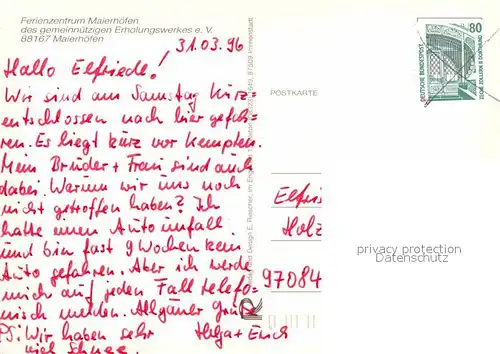 Ferienzentrum Maierhöfen
des gemeinnützigen Erholungswerkes e. V.
88167 Maierhöfen
31.03.96
Hallo Elfriede!
Wir sind am Samstag kurz-
entschlossen nach hier gefah-
ren. Es liegt kurz vor Kempten.
Mein Bruder + Frau sind auch
dabei. Warum wir uns noch
nicht getroffen haben? Ich
hatte einen Autounfall
und bin fast 9 Wochen kein
Auto gefahren. Aber ich werde
mich auf jeden Fall telefo-
nisch melden. Allgäuer Grüße
Helga + Erich
PS: Wir haben sehr
viel Schnee.
POSTKARTE
80
DEUTSCHE BUNDESPOST
Elfrie
Holz
97084
privacy protection
Datenschutz